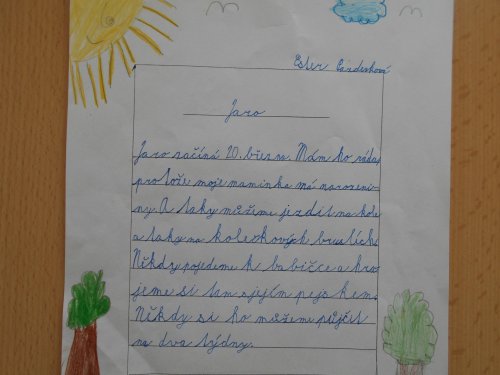 Ester
Jaro
Jaro začíná 20. březn. Mám ho ráda,
protože moje maminka má narozeni-
ny. A taky můžeme jezdit na kole
a taky na kolečkových bruslích.
Někdy pojedeme k babičce a hra
jeme si tam s jejím pejskem.
Někdy si ho můžeme půjčit
na dva týdny.